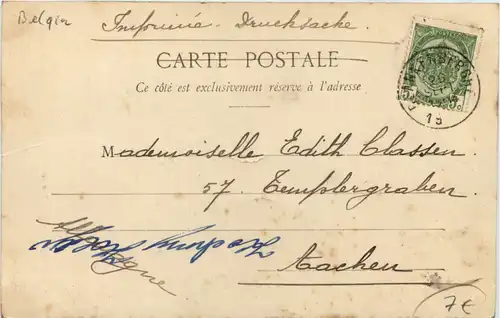 Belgien
Imprimé - Drucksache
CARTE POSTALE
Ce côté est exclusivement réservé à l'adresse
Mademoiselle Edith Classen
57. Templergraben
Aachen
Allemagne
7€